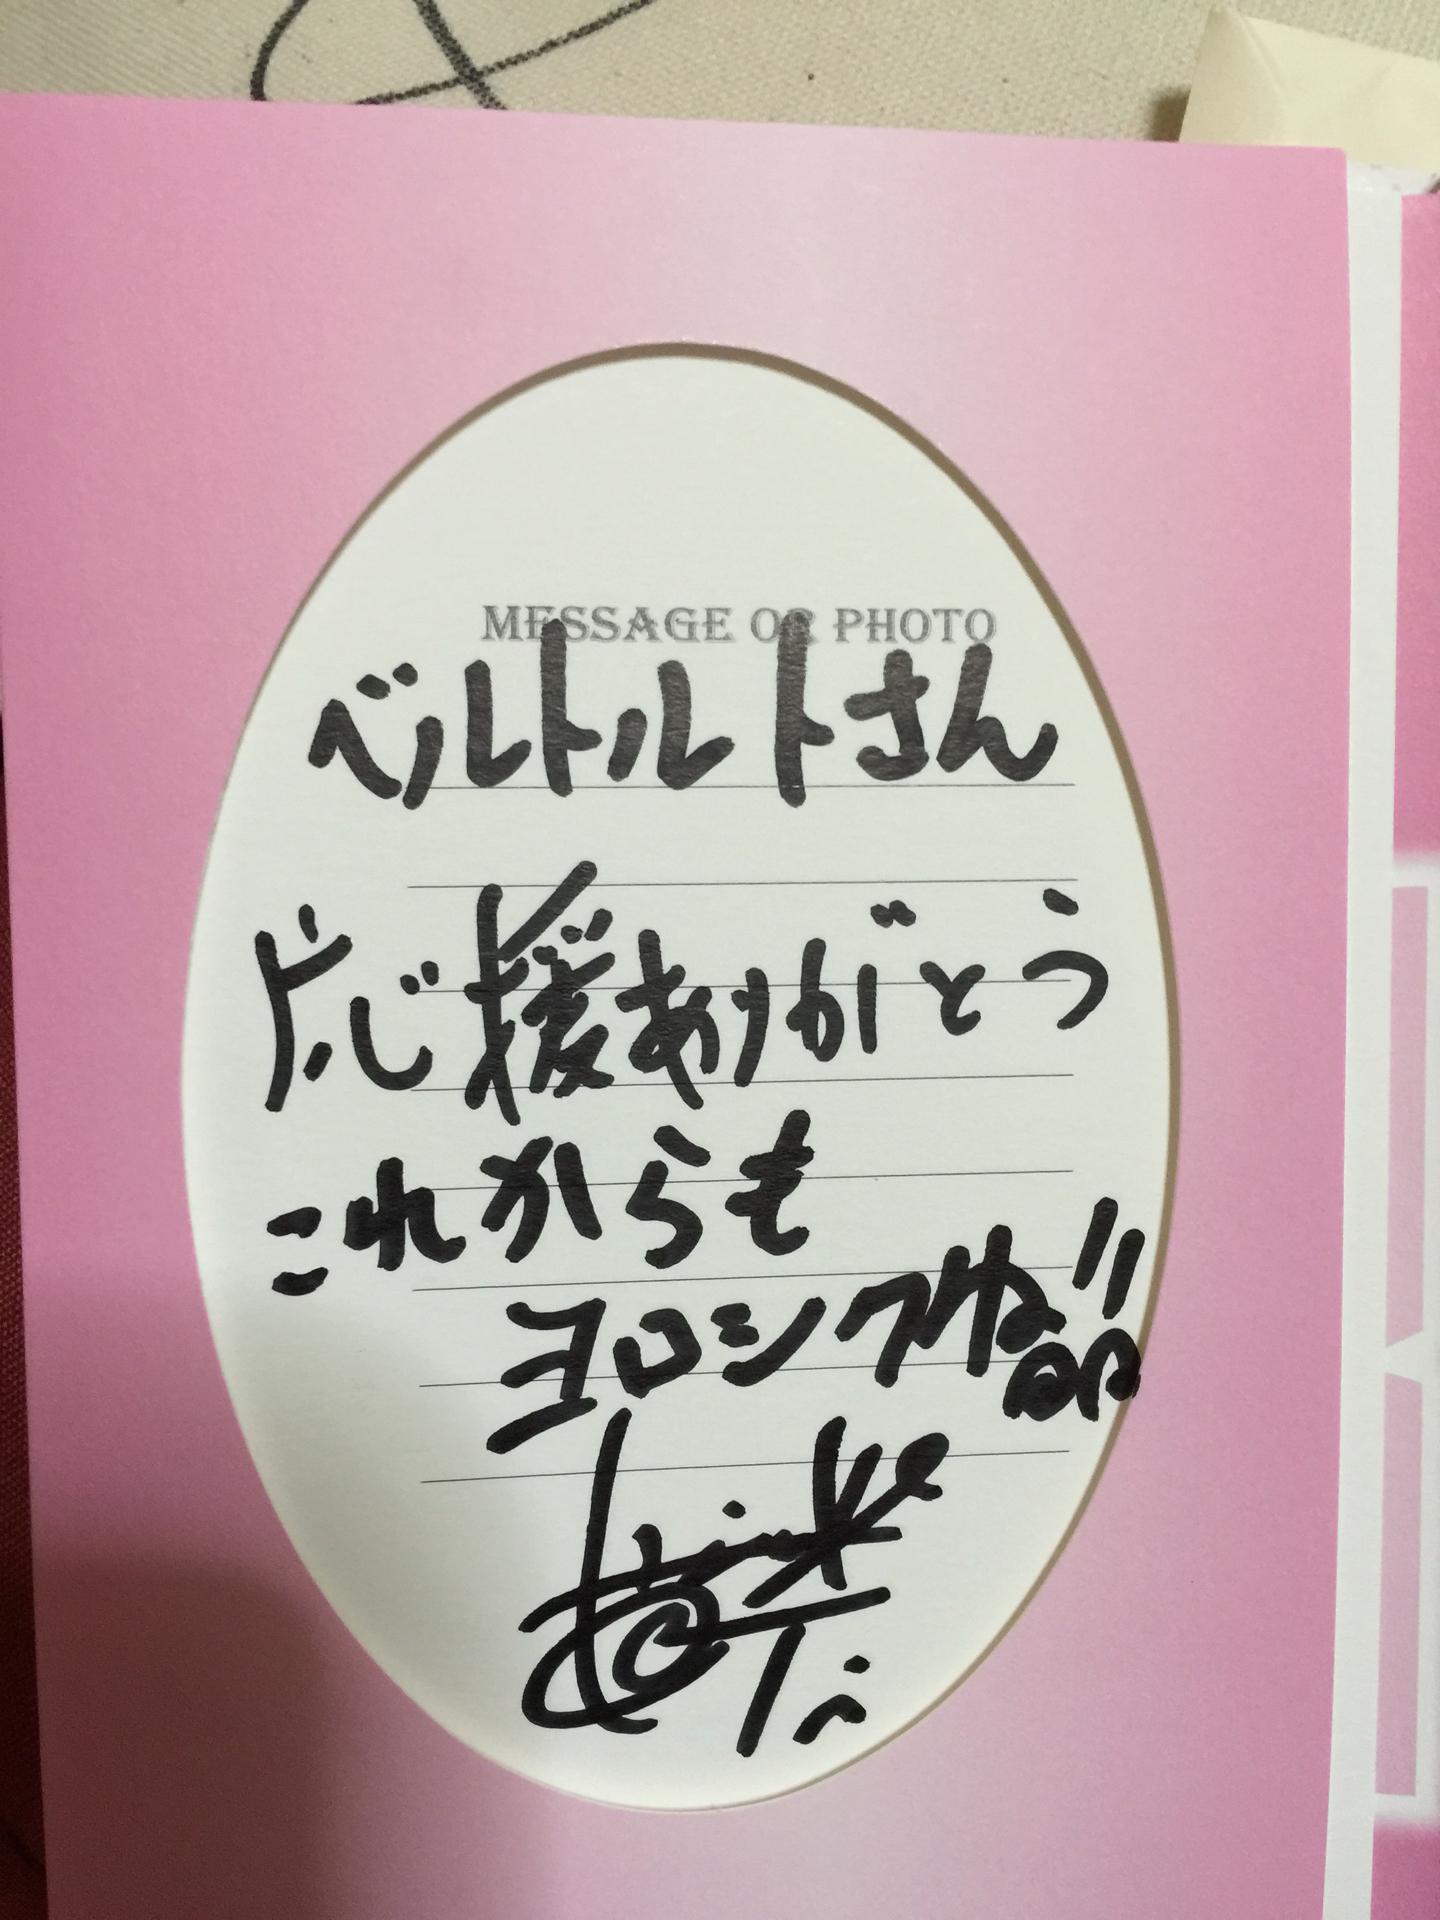 MESSAGE OR PHOTO
ベルトルトさん
応援ありがとう
これからも
ヨロシクね!!